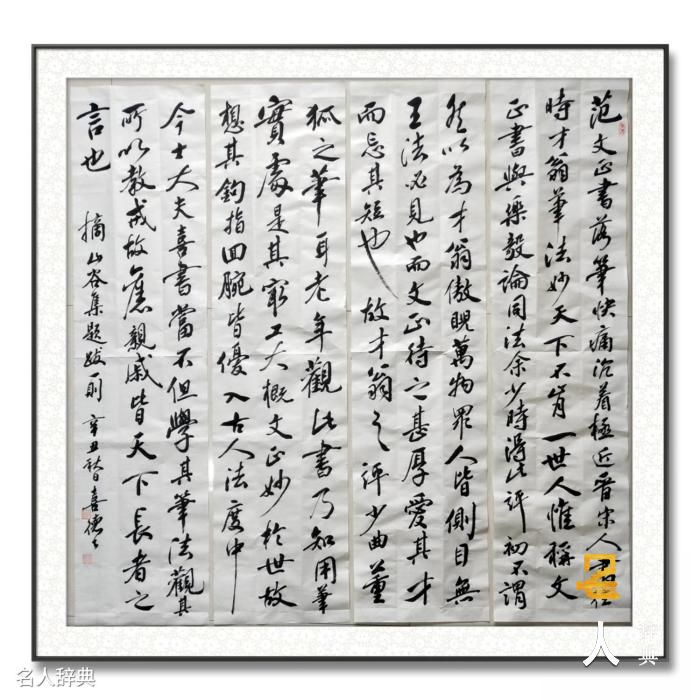 范文正書落筆快痛沉着極近晉宋人書往
時才翁筆法妙天下不肯一世人惟稱文
正書與樂毅論同法余少時得此評初不謂
然以為才翁傲睨萬物眾人皆側目無
王法必見也而文正待之甚厚愛其才
而忘其短也故才翁之評少曲董
狐之筆耳老年觀此書乃知用筆
實處是其最工大概文正妙於世故
想其鉤指回腕皆優入古人法度中
今士大夫喜書當不但學其筆法觀其
所以教戒故舊親戚皆天下長者之
言也
摘山谷集題跋一則 辛丑 喜德
名人辞典
名人辞典